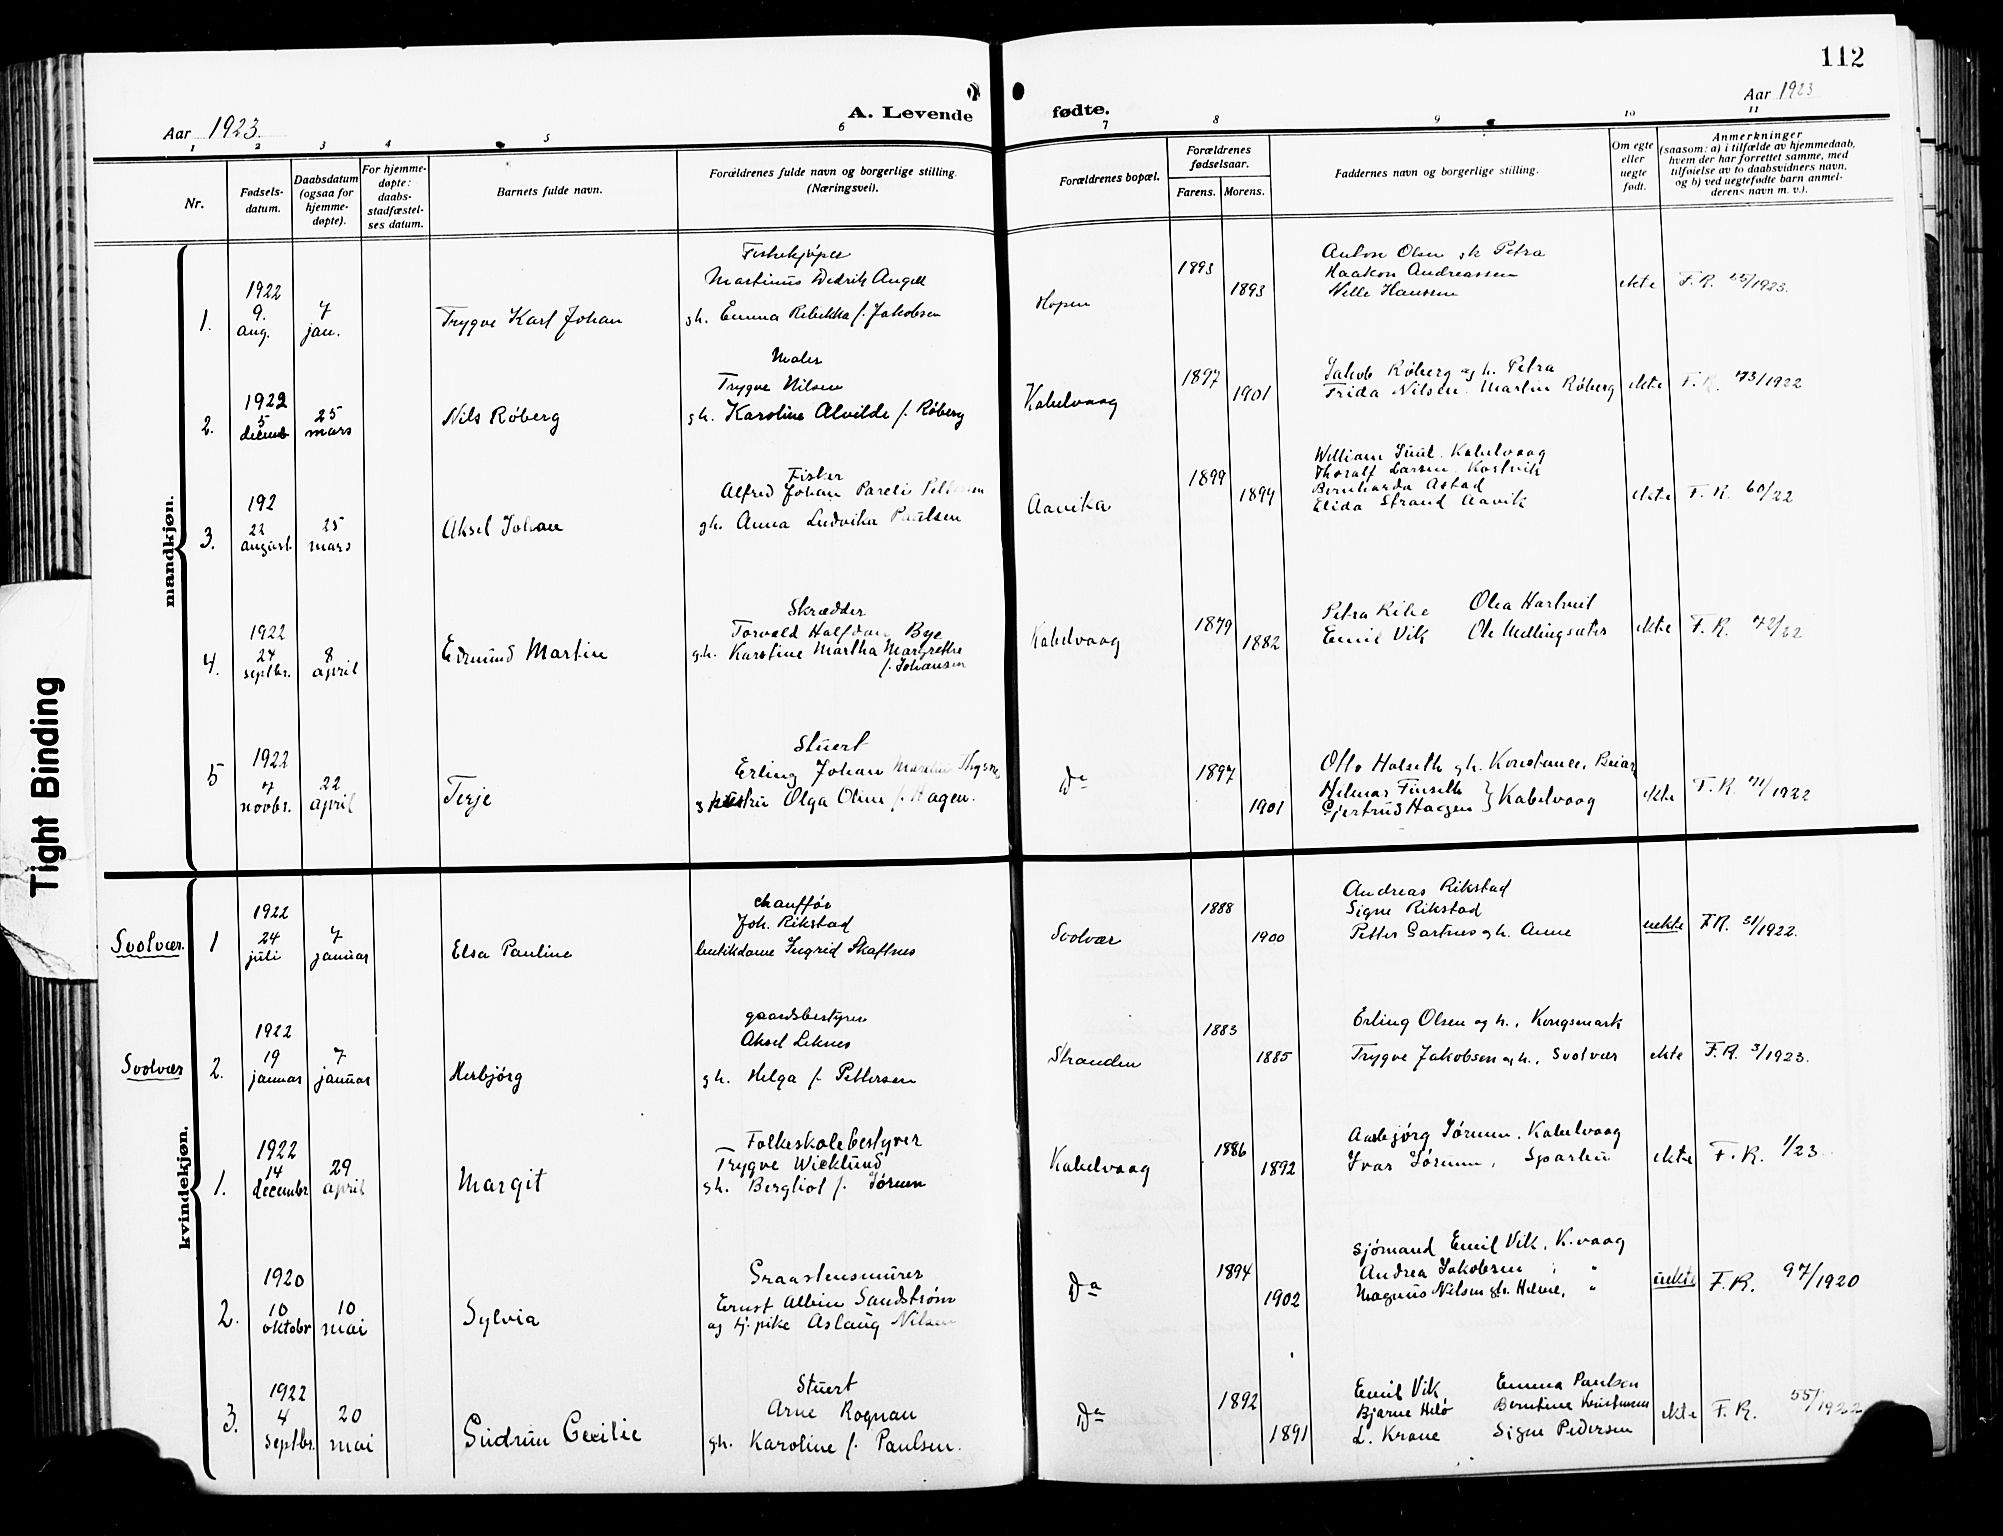 112
Aar 1923.
A. Levende fødte.
Aar 1923
1 2 3 4 5 6 7 8 9 10 11
Nr.
Fødsels-
datum.
Daabsdatum
(ogsaa for
hjemme-
døpte).
For hjemme-
døpte:
daabs-
stadfæstel-
ses datum.
Barnets fulde navn.
Forældrenes fulde navn og borgerlige stilling.
(Næringsvei).
Forældrenes bopæl.
Forældrenes
fødselsaar.
Farens. Morens.
Faddernes navn og borgerlige stilling.
Om egte
eller
uegte
født.
Anmerkninger
(saasom: a) i tilfælde av hjemmedaab,
hvem der har forrettet samme, med
tilføielse av to daabsvidners navn,
og b) ved uegtefødte barn anmel-
derens navn m. v.).
mandkjøn.
1.
1922
9.
aug.
7
jan.
Trygve Karl Johan
Fiskekjøper
Martinus Dedrik Angell
gh. Emma Rebekka f. Jakobsen
Hopen
1893
1893
Anton Olsen gh Petra
Haakon Andreassen
Nelle Hanssen
ekte
F. R. /1923.
2.
1922
5
decemb
25
mars
Nils Røberg
Maler
Trygve Nilsen
gh. Karoline Alvilde f. Røberg
Kabelvaag
1897
1901
Jakob Røberg og h. Petra
Frida Nilsen. Martin Røberg
ekte
F. R. 73/1922
3.
192
22
august.
25
mars
Aksel Johan
Fisker
Alfred Johan Pareli Pettersen
gh. Anna Ludvika Paulsen
Aavika
1899
1894
William Juul. Kabelvaag
Thoralf Larsen, Kastvik
Bernharda Astad
Elida Strand Aavik
ekte
F. R. 60/22
4.
1922
24
septbr.
8
april
Edmund Martin
Skrædder
Torvald Halfdan Bye
gh. Karstine Martha Margrethe
f. Johansen
Kabelvaag
1879
1882
Petra Rihe Olea Hartveit
Emil Vik Ole Medlingsæter
ekte
F. R. 72/22
5
1922
7
novbr.
22
april
Terje
Stuert
Erling Johan
Olga Oline f. Hagen.
Da
1897
1901
Otto Halseth gh. Konstance,
Helmar Finseth
Gjertrud Haagen } Kabelvaag
ekte
F. R. 71/1922
kvindekjøn.
Svolvær.
1
1922
24
juli
7
januar
Elsa Pauline
chauffør
Joh. Rikstad
butikdame Ingrid Skaftnes
Svolvær
1888
1900
Andreas Rikstad
Signe Rikstad
Petter Gartnes gh. Anne
uekte
F.R. 51/1922.
Svolvær
2.
1922
19
januar
7
januar
Herbjørg
gaardsbestyrer
Aksel Leknes
gh. Helga f. Pettersen
Stranden
1883
1885
Erling Olsen og h., Kongsmark
Trygve Jakobsen og h., Svolvær
ekte
F. R. 3/1923.
1.
1922
14
decembr
29
april
Margit
Folkeskolebestyrer
Trygve Wicklund
gh. Bergliot f. Jørum
Kabelvaag
1886
1892
Aasbjørg Jørum, Kabelvaag
Ivar Jørum, Sparbu
ekte
F. R. 1/23
2.
1920
10
oktobr
10
mai
Sylvia
Graastensmurer
Ernst Albin Sandstrøm
og tj. pike Aslaug Nilsen
Da
1894
1902
Sjømand Emil Vik, K.vaag
Andrea Jakobsen, "
Magnus Nilsen gh. Helene, "
uekte
F. R. 97/1920
3.
1922
4
septbr.
20
mai
Gudrun Cecilie
Stuert
Arne Rognan
gh. Karoline f. Paulsen.
Da
1892
1891
Emil Vik, Emma Paulsen
Bjarne Helø Berntine
L. Krane Signe Pedersen
ekte
F. R. 55/1922
Tight Binding